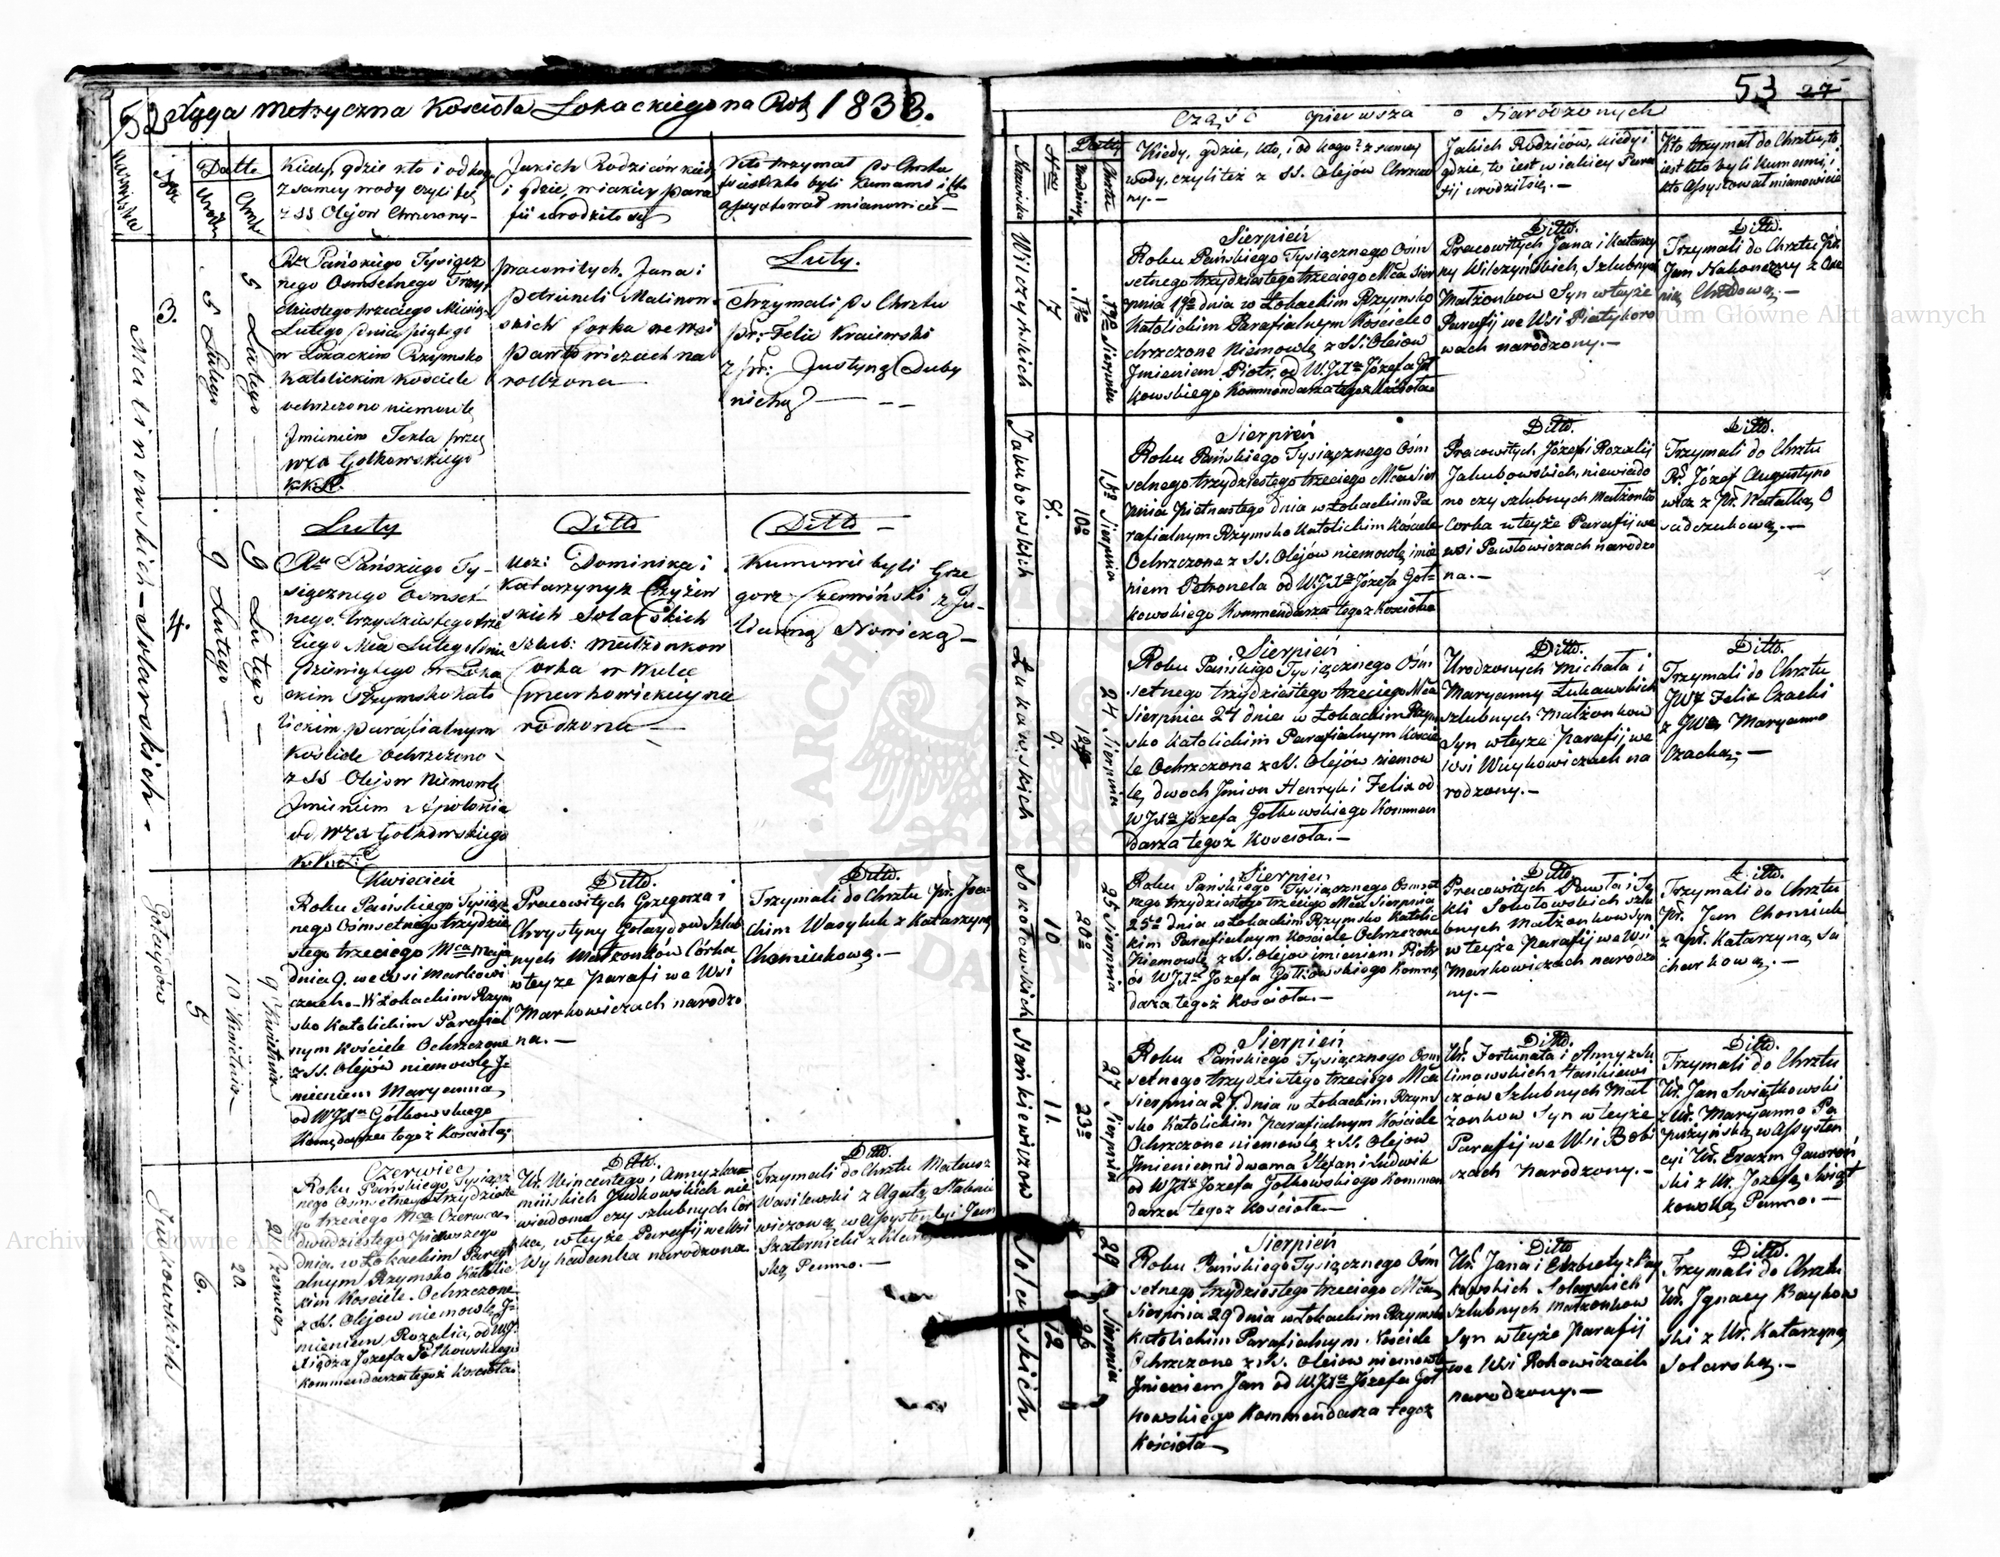 52 Xięga Metryczna Kościoła Łokackiego na Rok 1833.
Nazwiska
Nr
Datto
Urodz:
Chrztu
Kiedy, gdzie kto i od kogo
z samey wody czyli też
z SS Olejow Chrzczony –
Jakich Rodziców kiedy
i gdzie, w iakiey para
fii urodziło się
Kto trzymał do Chrztu
to iest kto byli Kumami i kto
assystował mianowicie –
Malinowskich – Solarskich.
3.
5 Lutego
5 Lutego –
Rku Pańskiego Tysiącz
nego Osmsetnego Trzy
dziestego trzeciego Miesiąca
Lutego dnia piątego
w Łokackim Rzymsko
Katolickim Kosciele
ochrzczono niemowlę
Jmieniem Tekla przez
Gołkowskiego
pracowitych Jana i
Petruneli Malinow
skich Corka we wsi
Pawłowiczach na
rodzona –
Luty.
Trzymali do Chrztu
pr: Felix Kraiewski
z pr: Justyną Duby
nichą – – –
4.
9 Lutego
9 Lutego –
Luty
Rku Pańskiego Ty-
siącznego Osmset
nego trzydziestego trze
ciego Mca Lutego dnia
dziewiątego w Łoka
ckim Rzymsko Kato
lickim parafialnym
Kościele Ochrzczono
z SS Olejow Niemowlę
Jmieniem Apolonia
od Gołkowskiego
Ditto
Dominika i
Katarzyny z Czyżew
skich Solarskich
Szlub: Małżonkow
Corka w Wulce
Smurkowieckiey na
rodzona –
Ditto –
Kumowie byli Grze
gorz Czerwiński z Ju-
lianną Nowicką –
Gołaydów
5
10 Kwietnia
9 Kwietnia
Kwiecień
Roku Pańskiego Tysiącz
nego Osmsetnego trzydzie
stego trzeciego Mca Maja
dnia 9. we wsi Markowi
czach. – W Łokackim Rzym
sko Katolickim Parafial
nym Kościele Ochrzczone
z SS. Olejów niemowlę J-
mieniem Maryanna,
od WJXa Gołkowskiego
Komendarza tegoż Kościoła.
Ditto.
Pracowitych Grzegorza i
Chrystyny Gołaydow Szlub
nych Małżonków Córka
w teyże Parafi we Wsi
Markowiczach narodzo
na. –
Ditto.
Trzymali do Chrztu pr. Joa-
chim Wasyluk z Katarzyną
Chomiukową. –
Judkowskich
6.
20
21 Czerwca
Czerwiec
Roku Pańskiego Tysiącz
nego Osmsetnego trzydzieste
go trzeciego Mca Czerwca
dwudziestego pierwszego
dnia w Łokackim Parafi
alnym Rzymsko Katolic
kim Kościele Ochrzczone
z SS. Olejow niemowlę J-
mieniem Rozalia, od WJ
Xiędza Jozefa Gołkowskiego
Kommendarza tegoż Kościoła
Ditto.
Ur. Wincentego i Anny z Ka-
mińskich Judkowskich nie
wiadomo czy szlubnych Cór
ka, w teyże Parafij we Wsi
narodzona
Ditto.
Trzymali do Chrztu Mateusz
Wasilewski z Agatą Stalenie
wiczową, w assystencyi Jan
ską Panną. –
53 27
Część pierwsza o Narodzonych
Nazwiska
Nro
Datty
Urodziny.
Chrztu
Kiedy, gdzie, kto, i od kogo? z samey
wody, czyli też z SS. Olejów Chrzczo
ny. –
Jakich Rodziców, kiedy i
gdzie, to iest w iakiey Para
fij urodził się. –
Kto trzymał do Chrztu, to
iest kto byli Kumami, i
kto Assystował mianowicie
Wilczyńskich
7
17a
19a Sierpnia
Sierpień
Roku Pańskiego Tysiącznego Ośm
setnego trzydziestego trzeciego Mca Sier
pnia 19a dnia w Łokackim Rzymsko
Katolickim Parafialnym Kościele O
chrzczone Niemowlę z SS. Olejow
Jmieniem Piotr, od WJXa Józefa Goł
kowskiego Kommendarza tegoż Kościoła
Ditto.
Pracowitych Jana i Katarzy
ny Wilczyńskich, Szlubnych
Małżonkow Syn w teyże
Parafij we Wsi Piatykoro
wach narodzony. –
Ditto.
Trzymali do Chrztu Pr.
Jan Nakoneczny z Kse
nią Chudową. –
Jakubowskich
8.
10a
15a Sierpnia
Sierpień
Roku Pańskiego Tysiącznego Ośm
setnego trzydziestego trzeciego Mca Sier
pnia Piętnastego dnia w Łokackim Pa
rafialnym Rzymsko Katolickim Kościele
Ochrzczone z SS. Olejów niemowlę imie
niem Petronela od W.JXa Józefa Goł-
kowskiego Kommendarza tegoż Kościoła
Ditto.
Pracowitych Józefa i Rozalij
Jakubowskich, niewiado
mo czy szlubnych Małżonków
Corka w teyże Parafij we
wsi Pawłowiczach narodzo
na. –
Ditto.
Trzymali do Chrztu
Pr. Józef Augustyno
wicz z Pr. Natalką O
sadczukową. –
Łukawskich
9.
24 Sierpnia
Sierpień
Roku Pańskigo Tysiącznego Ośm
setnego trzydziestego trzeciego Mca
Sierpnia 24 dnia w Łokackim Rzym
sko Katolickim Parafialnym Koście
le Ochrzczone z SS. Olejów niemow
lę, dwoch Jmion Henryk i Felix od
WJXa Józefa Gołkowskiego Kommen
darza tegoż Kościoła. –
Ditto.
Urodzonych Michała i
Maryanny Łukawskich
szlubnych Małżonkow
Syn w teyże Parafij we
Wsi Wuykowiczach na
rodzony. –
Ditto.
Trzymali do Chrztu
JWX Felix Czacki
z JWą Maryanną
Czacką. –
Sokołowskich
10
20a
25 Sierpnia
Sierpień
Roku Pańskiego Tysiącznego Osmset
nego trzydziestego trzeciego Mca Sierpnia
25a dnia w Łokackim Rzymsko Katolic
kim Parafialnym Kościele Ochrzczone
Niemowlę z SS. Olejow imieniem Piotr
od WJXa Jozefa Gołkowskiego Kommen
darza tegoż Kościoła. –
Ditto.
Pracowitych Pawła i Te
kli Sokołowskich szlu
bnych Małżonkow Syn
w teyże Parafij we Wsi
Markowiczach narodzo
ny. –
Ditto.
Trzymali do Chrztu
Pr. Jan Chomiuk
z Pr. Katarzyną Sa
charkową. –
Stańkiewiczow
11.
23a
27 Sierpnia
Sierpień
Roku Pańskiego Tysiącznego Osm
setnego trzydziestego trzeciego Mca
Sierpnia 27. dnia w Łokackim Rzym
sko Katolickim parafialnym Kościele
Ochrzczone niemowlę z SS. Olejow
Jmienienni dwoma Stefan i Ludwik
od WJXa Jozefa Gołkowskiego Kommen
darza tegoż Kościoła. –
Ditto.
Ur. Fortunata i Anny z Su
limowskich Stankiewi
czów Szlubnych Mał
żonkow Syn w teyże
Parafij we Wsi Bobi
czach Narodzony. –
Ditto.
Trzymali do Chrztu
Ur. Jan Swiątkowski
z Ur. Maryanną Pa
pużyńską, w Assysten
cyi Ur. Erazm Gawroń
ski z Ur. Jozefą Swiąt
kowską Panną. –
Solarskich
12
26
29 Sierpnia
Sierpień
Roku Pańskiego Tysiącznego Ośm
setnego trzydziestego trzeciego Mca
Sierpnia 29 dnia w Łokackim Rzymsko
Katolickim Parafialnym Kościele
Ochrzczone z SS. Olejow niemowlę
Jmieniem Jan od W.JXa Józefa Goł
kowskiego Kommendarza tegoż
Kościoła –
Ditto
Ur. Jana i Elzbiety z Ray
kowskich Solarskich
Szlubnych Małżonkow
Syn w teyże Parafij
we Wsi Rokowiczach
narodzony. –
Ditto.
Trzymali do Chrztu
Ur. Jgnacy Baykow
ski z Ur. Katarzyną
Solarską. –
Archiwum Główne Akt Dawnych